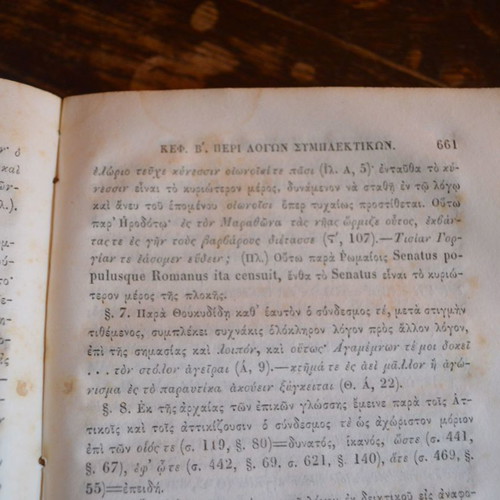 ΚΕΦ. Β΄, ΠΕΡΙ ΛΟΓΩΝ ΣΥΜΠΛΕΚΤΙΚΩΝ. 661
ἑλώρια τεῦχε κύνεσσιν οἰωνοῖσίτε πᾶσι (Ιλ. Α, 5)· ἐνταῦθα τὸ κύ-
νεσσιν εἶναι τὸ κυριώτερον μέρος, δυνάμενον νὰ σταθῇ ἐν τῷ λόγῳ
καὶ ἄνευ τοῦ ἑπομένου οἰωνοῖσι ὅπερ τυχαίως προστίθεται. Οὕτω
παρ' Ἡροδότῳ· ἐς τὸν Μαραθῶνα τὰς νῆας ὥρμιζε οὗτος, ἐκβάν-
τας τε ἐς γῆν τοὺς βαρβάρους διέτασσε (ς΄, 107).—Τισίαν Γορ-
γίαν τε ἐάσομεν εὕδειν; (Πλ.) Οὕτω παρὰ Ῥωμαίοις Senatus po-
pulusque Romanus ita censuit, ἔνθα τὸ Senatus εἶναι τὸ κυριώ-
τερον μέρος τῆς πλοκῆς.
§. 7. Παρὰ Θουκυδίδῃ καθ' ἑαυτὸν ὁ σύνδεσμος τέ, μετὰ στιγμὴν
τιθέμενος, συμπλέκει συχνάκις ὁλόκληρον λόγον πρὸς ἄλλον λόγον,
ἐπὶ τῆς σημασίας καὶ λοιπόν, καὶ οὕτως· Ἀγαμέμνων τέ μοι δοκεῖ
. . . . τὸν στόλον ἀγεῖραι (Α, 9).—κτῆμά τε ἐς ἀεὶ μᾶλλον ἢ ἀγώ-
νισμα ἐς τὸ παραυτίκα ἀκούειν ξύγκειται (Θ. Α, 22).
§. 8. Ἐκ τῆς ἀρχαίας τῶν ἐπικῶν γλώσσης ἔμεινε παρὰ τοῖς Ἀτ-
τικοῖς καὶ τοῖς ἀττικίζουσιν ὁ σύνδεσμος τὲ ὡς ἀχώριστον μόριον
ἐπὶ τῶν οἷός τε (σ. 119, §. 80)=δυνατός, ἱκανός, ὥστε (σ. 441,
§. 67), ἐφ' ᾧτε (σ. 442, §. 69, σ. 621, §. 140), ἅτε (σ. 469, §.
55)=ἐπειδή.